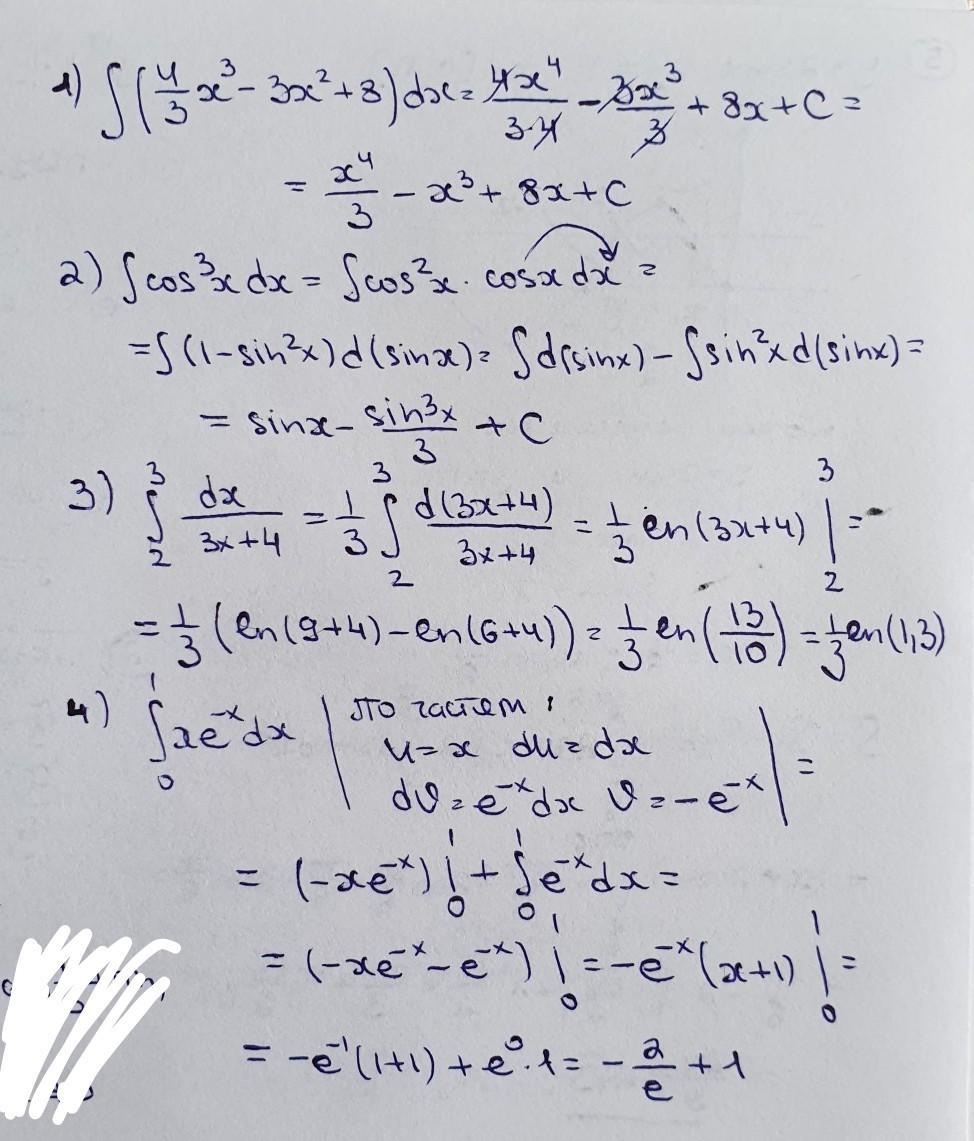 1) ∫(4/3 x³ - 3x² + 8)dx = 4x⁴/3·4 - 3x³/3 + 8x + C =
= x⁴/3 - x³ + 8x + C
2) ∫cos³x dx = ∫cos²x · cosx dx =
= ∫(1-sin²x)d(sinx) = ∫d(sinx) - ∫sin²x d(sinx) =
= sinx - sin³x/3 + C
3) ∫₂³ dx/3x+4 = 1/3 ∫₂³ d(3x+4)/3x+4 = 1/3 ln(3x+4) |₂³ =
= 1/3 (ln(9+4) - ln(6+4)) = 1/3 ln(13/10) = 1/3 ln(1,3)
4) ∫₀¹ xe⁻ˣdx | по частям :
u = x du = dx
dv = e⁻ˣdx v = -e⁻ˣ | =
= (-xe⁻ˣ) |₀¹ + ∫₀¹ e⁻ˣdx =
= (-xe⁻ˣ - e⁻ˣ) |₀¹ = -e⁻ˣ(x+1) |₀¹ =
= -e⁻¹(1+1) + e⁰·1 = -2/e + 1